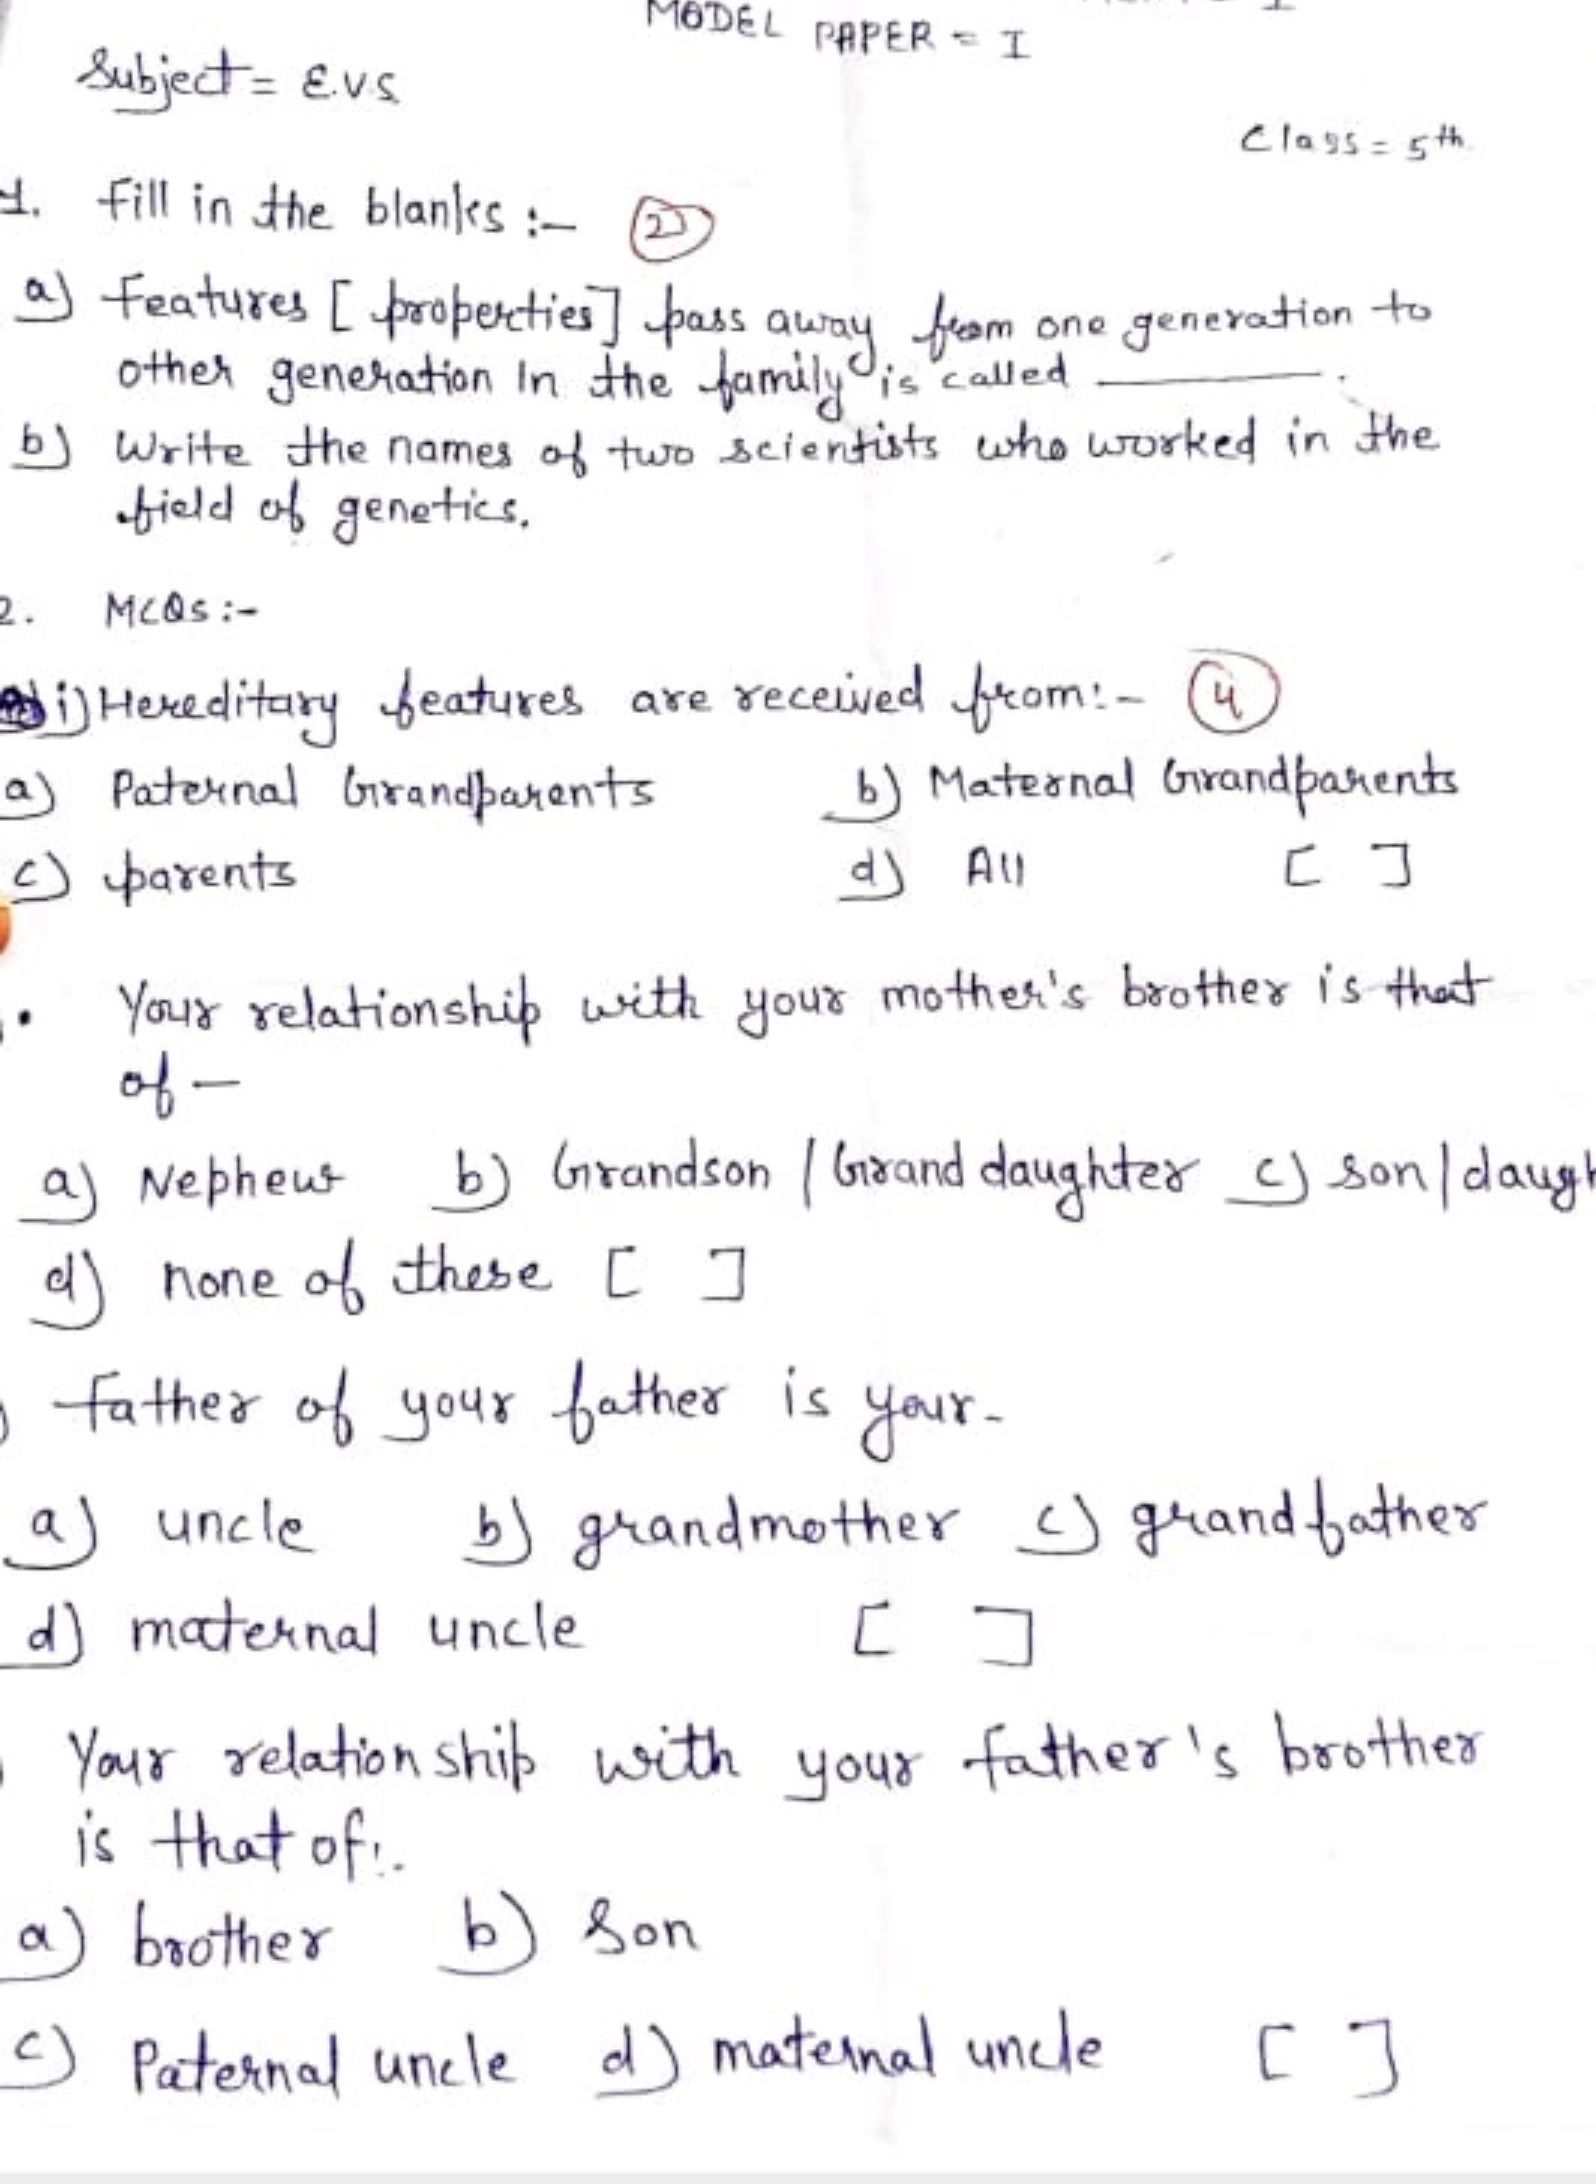 MODEL PAPER = I
Subject = E.V.S
Class = 5th
1. Fill in the blanks :- (2)
a) Features [properties] pass away from one generation to
other generation In the family is called ______.
b) Write the names of two scientists who worked in the
field of genetics.
2. MCQs :-
i) Hereditary features are received from:- (4)
a) Paternal Grandparents b) Maternal Grandparents
c) parents d) All [ ]
Your relationship with your mother's brother is that
of -
a) Nephew b) Grandson / Grand daughter c) son / daugh
d) none of these [ ]
Father of your father is your-
a) uncle b) grandmother c) grandfather
d) maternal uncle [ ]
Your relationship with your father's brother
is that of:.
a) brother b) Son
c) Paternal uncle d) maternal uncle [ ]